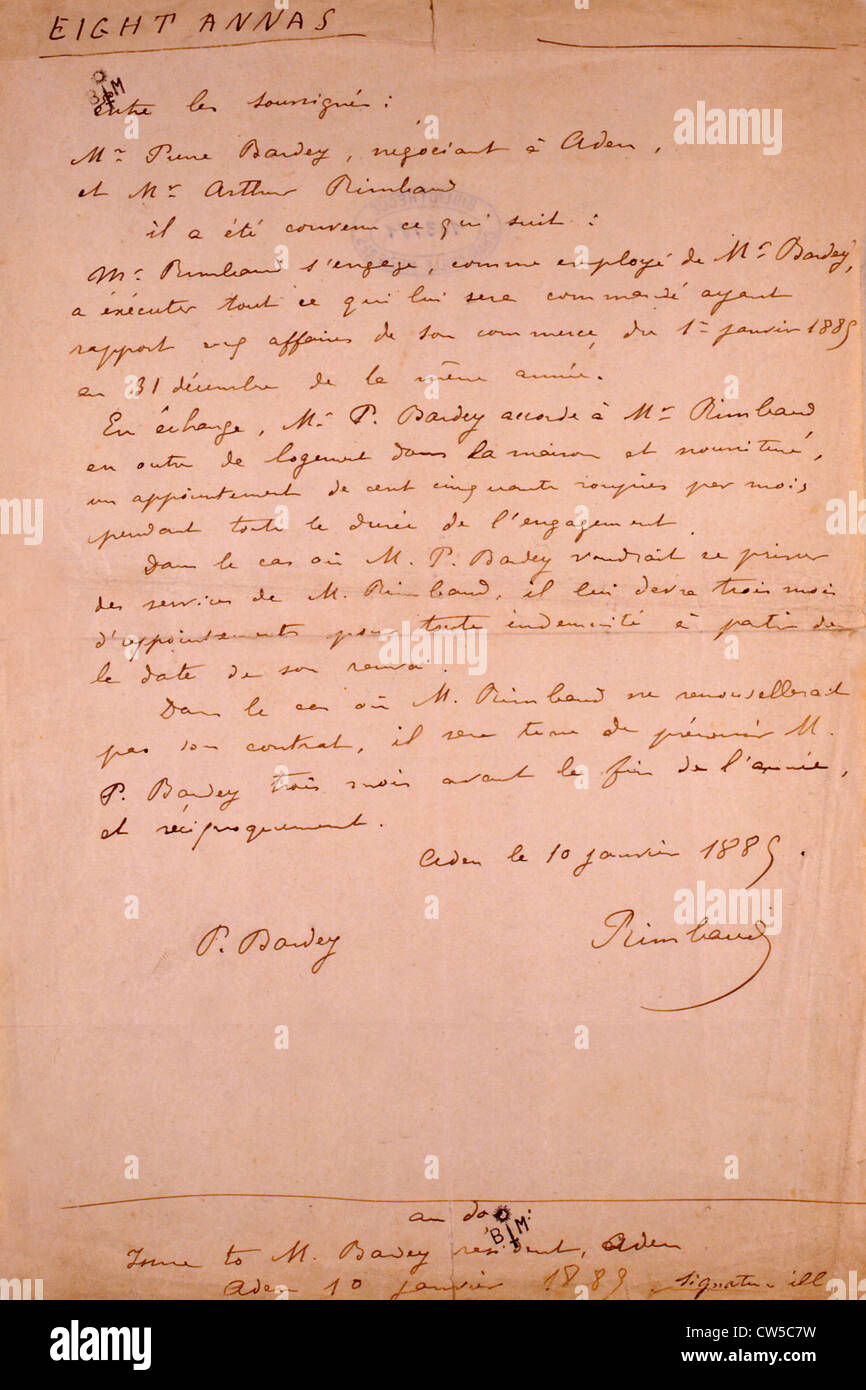 EIGHT ANNAS
B M
entre les soussignés :
Mr Pierre Bardey, négociant à Aden,
et Mr Arthur Rimbaud
il a été convenu ce qui suit :
Mr Rimbaud s'engage, comme employé de Mr Bardey,
a éxécuter tout ce qui lui sera commandé ayant
rapport aux affaires de son commerce, du 1er janvier 1885
au 31 décembre de la même année.
En échange, Mr P. Bardey accorde à Mr Rimbaud
en outre de logement dans la maison et nourriture,
un appointement de cent cinquante roupies par mois,
pendant toute la durée de l'engagement.
Dans le cas où M. P. Bardey voudrait se priver
des services de M. Rimbaud, il lui devra trois mois
d'appointements pour toute indemnité à partir de
la date de son renvoi.
Dans le cas où M. Rimbaud ne renouvellerait
pas son contrat, il sera tenu de prévenir M.
P. Bardey trois mois avant la fin de l'année,
et réciproquement.
Aden le 10 janvier 1885.
P. Bardey
Rimbaud
au dos :
B M
to M. Bardey résident, Aden
Aden 10 janvier 1885 signature ill
alamy
Image ID: CW5C7W
www.alamy.com